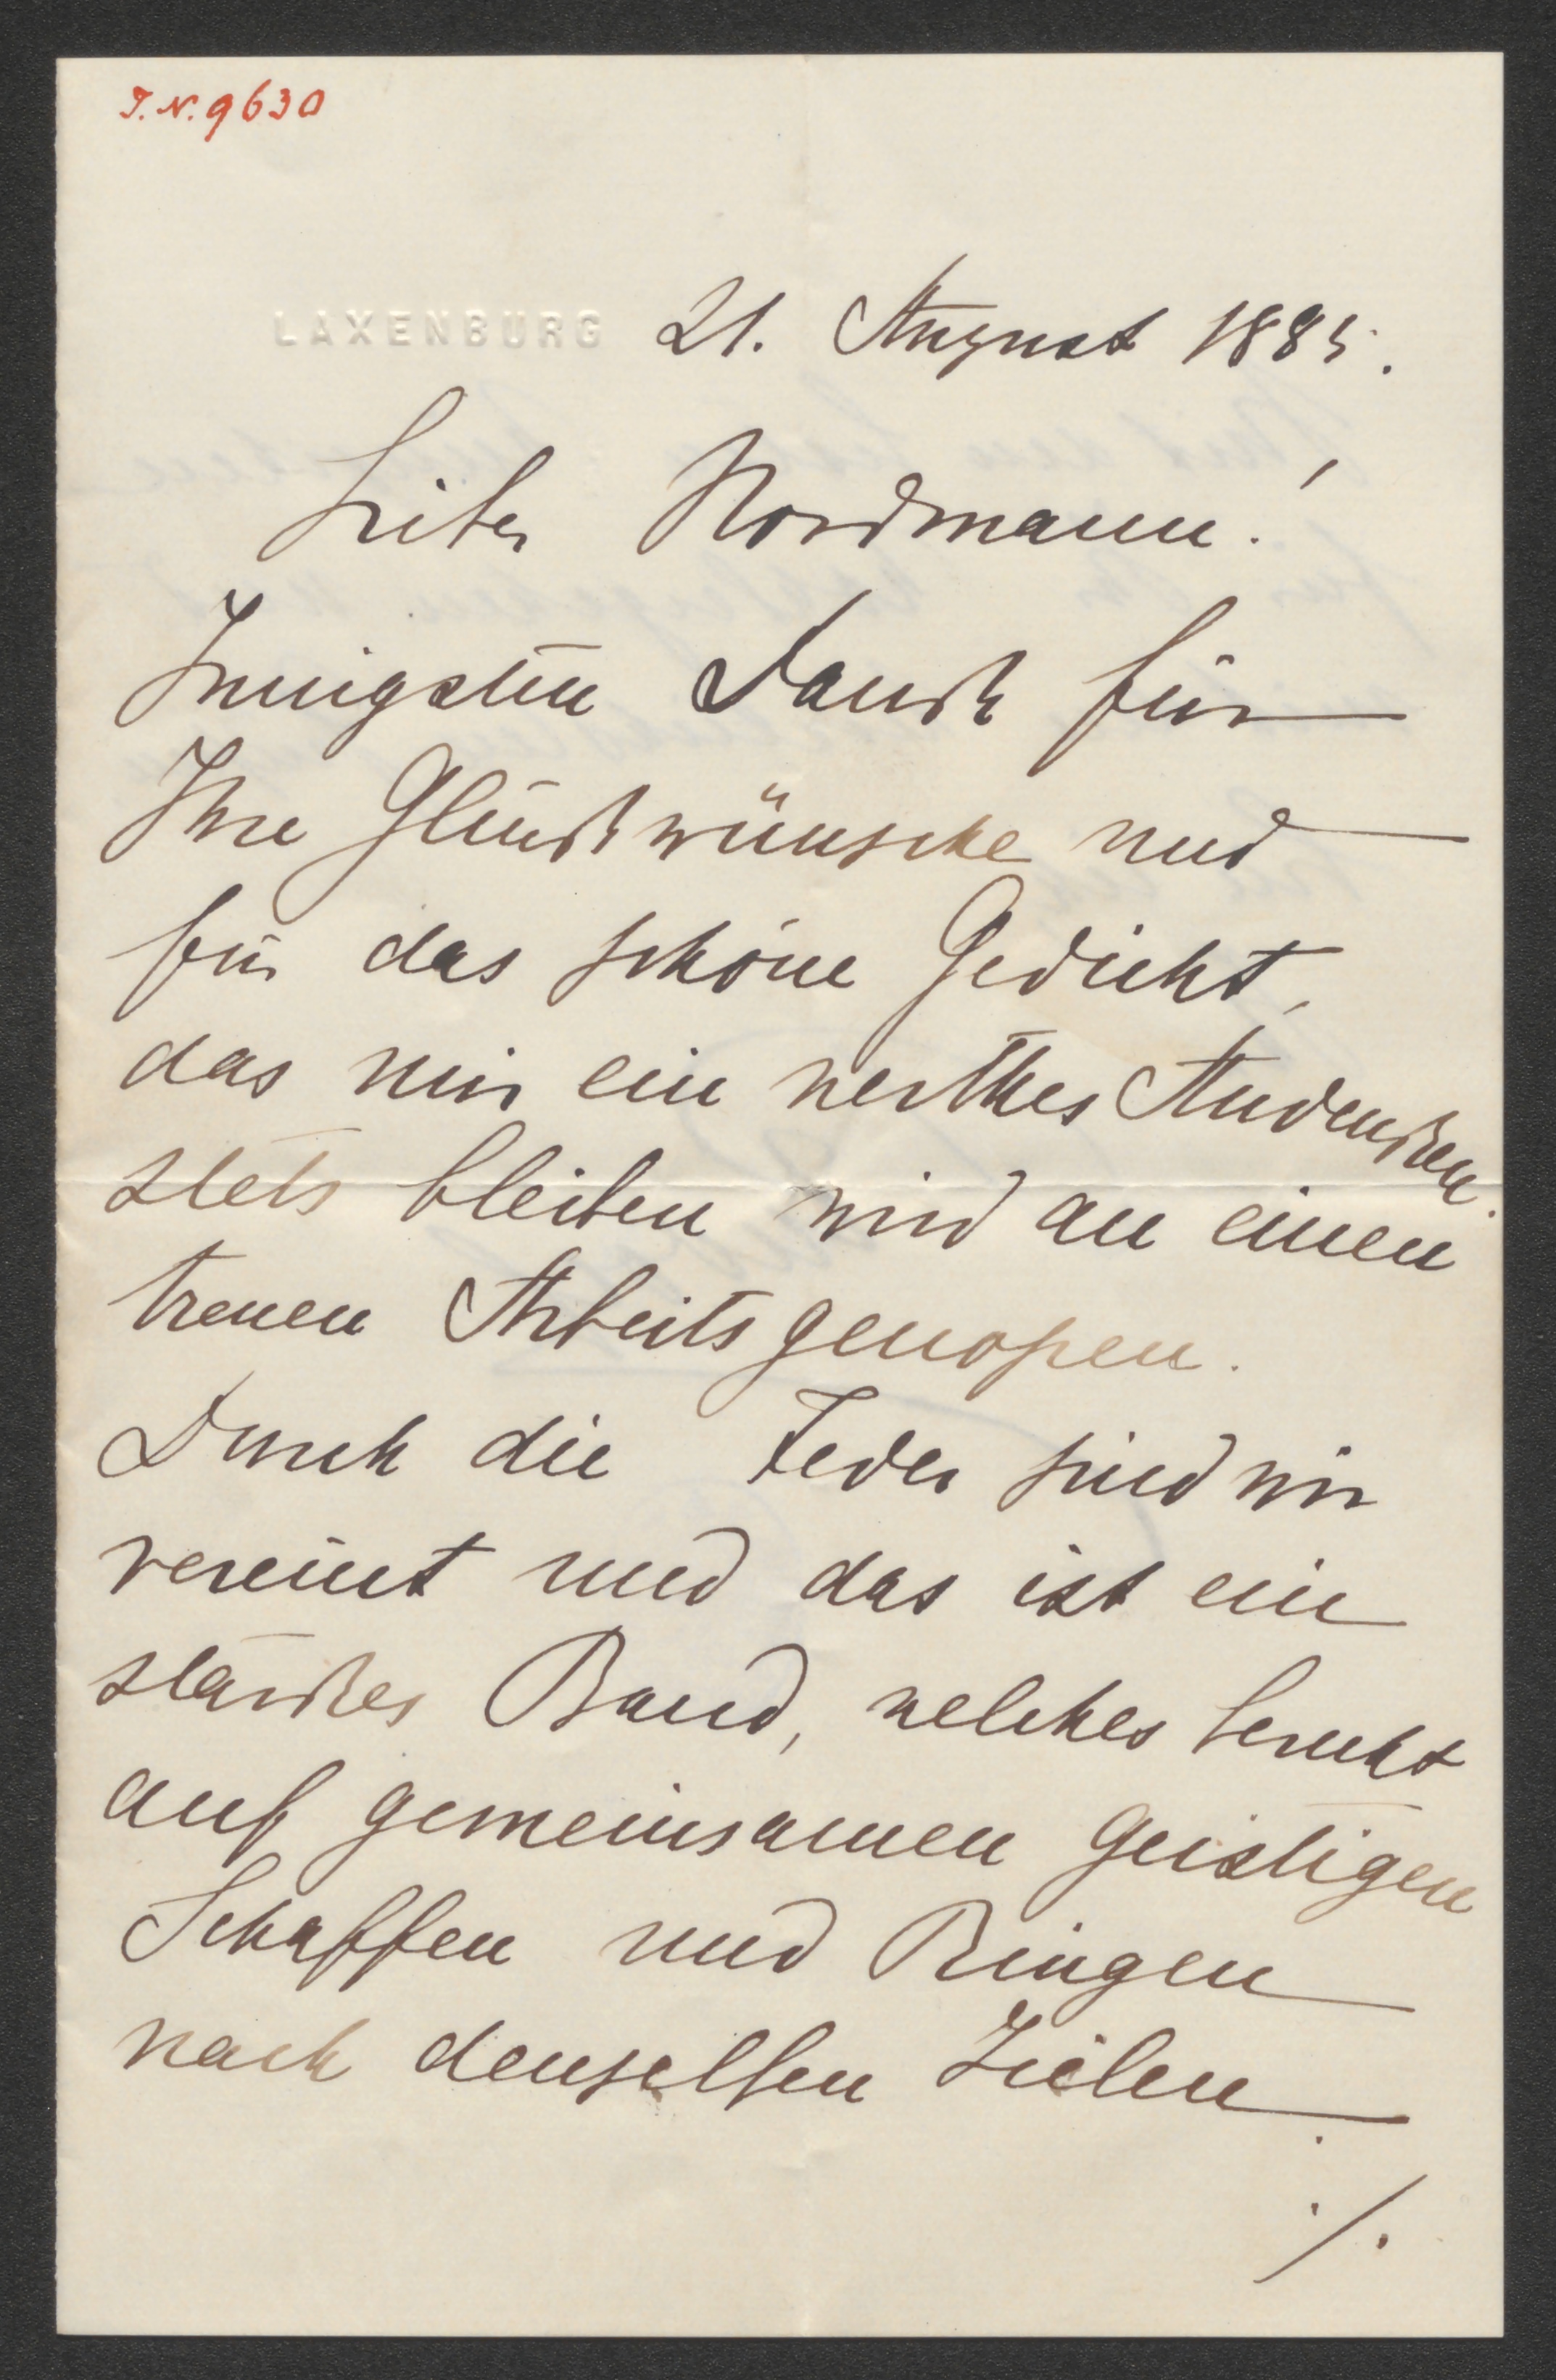 I. N. 9630
LAXENBURG 21. August 1885.
Lieber Nordmann!
Innigsten Dank für
Ihre Glückwünsche und
für das schöne Gedicht,
das mir ein werthes Andenken
stets bleiben wird an einen
treuen Arbeitsgenossen.
Durch die Feder sind wir
vereint und das ist ein
starkes Band, welches beruht
auf gemeinsamen geistigen
Schaffen und Ringen
nach denselben Zielen
./.